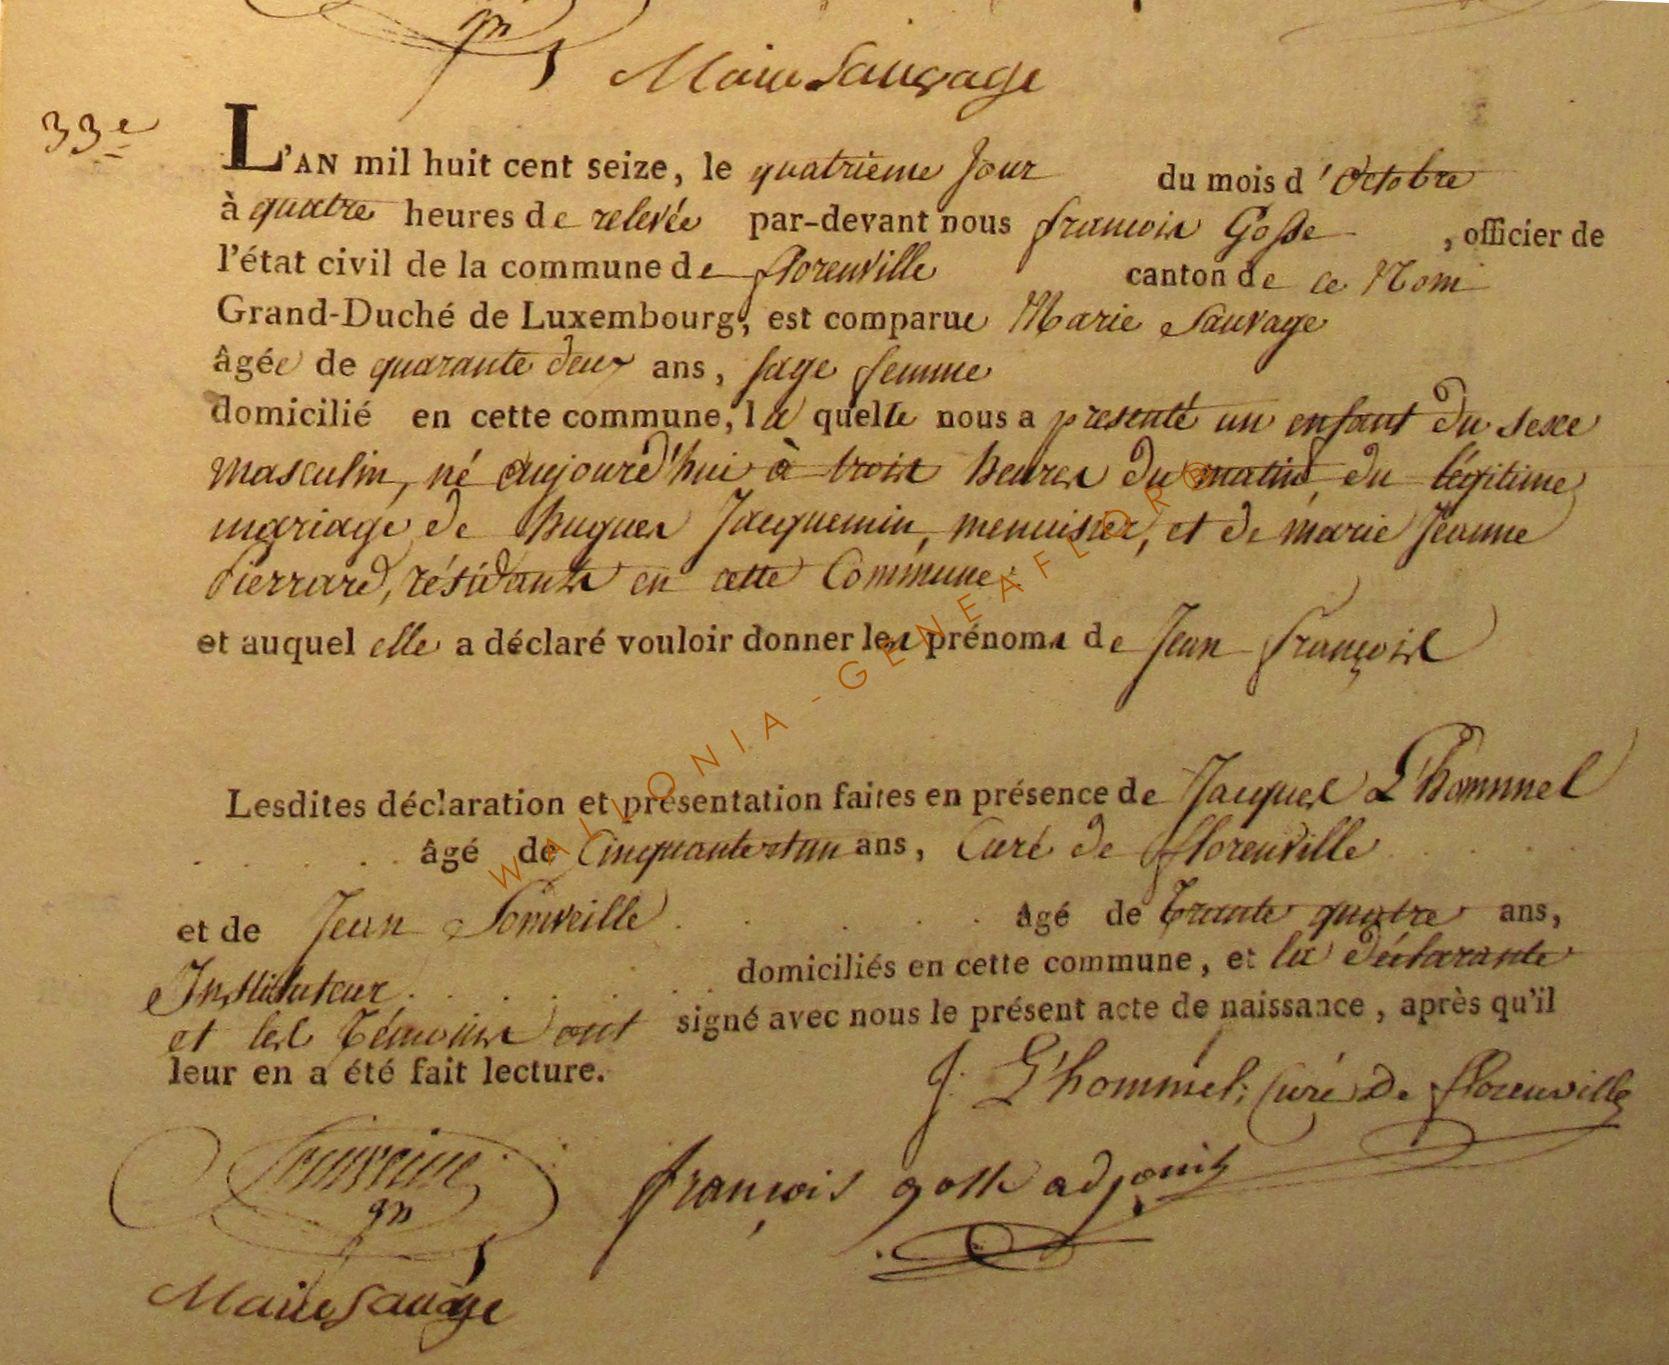 Marie Sauvage
33e
L'AN mil huit cent seize, le quatrième jour du mois d'Octobre
à quatre heures de relevée par-devant nous françois Gosse, officier de
l'état civil de la commune de florenville canton de ce Nom
Grand-Duché de Luxembourg, est comparue Marie Sauvage
âgée de quarante deux ans, sage femme
domicilié en cette commune, la quelle nous a presenté un enfant du sexe
masculin, né aujourd'hui à trois heures du matin, du légitime
mariage de hugues Jacquemin, menuisier, et de marie Jeanne
Pierrard, résidants en cette Commune.
et auquel elle a déclaré vouloir donner les prénoms de Jean françois
Lesdites déclaration et présentation faites en présence de Jacques L'hommel
âgé de Cinquante et un ans, Curé de florenville
et de Jean Somveille âgé de trante quatre ans,
Instituteur domiciliés en cette commune, et la déclarante
et les témoins ont signé avec nous le présent acte de naissance, après qu'il
leur en a été fait lecture.
J. L'hommel; Curé de florenville
françois gosse adjoint
Marie Sauvage
WALLONIA - GENEAFLORE